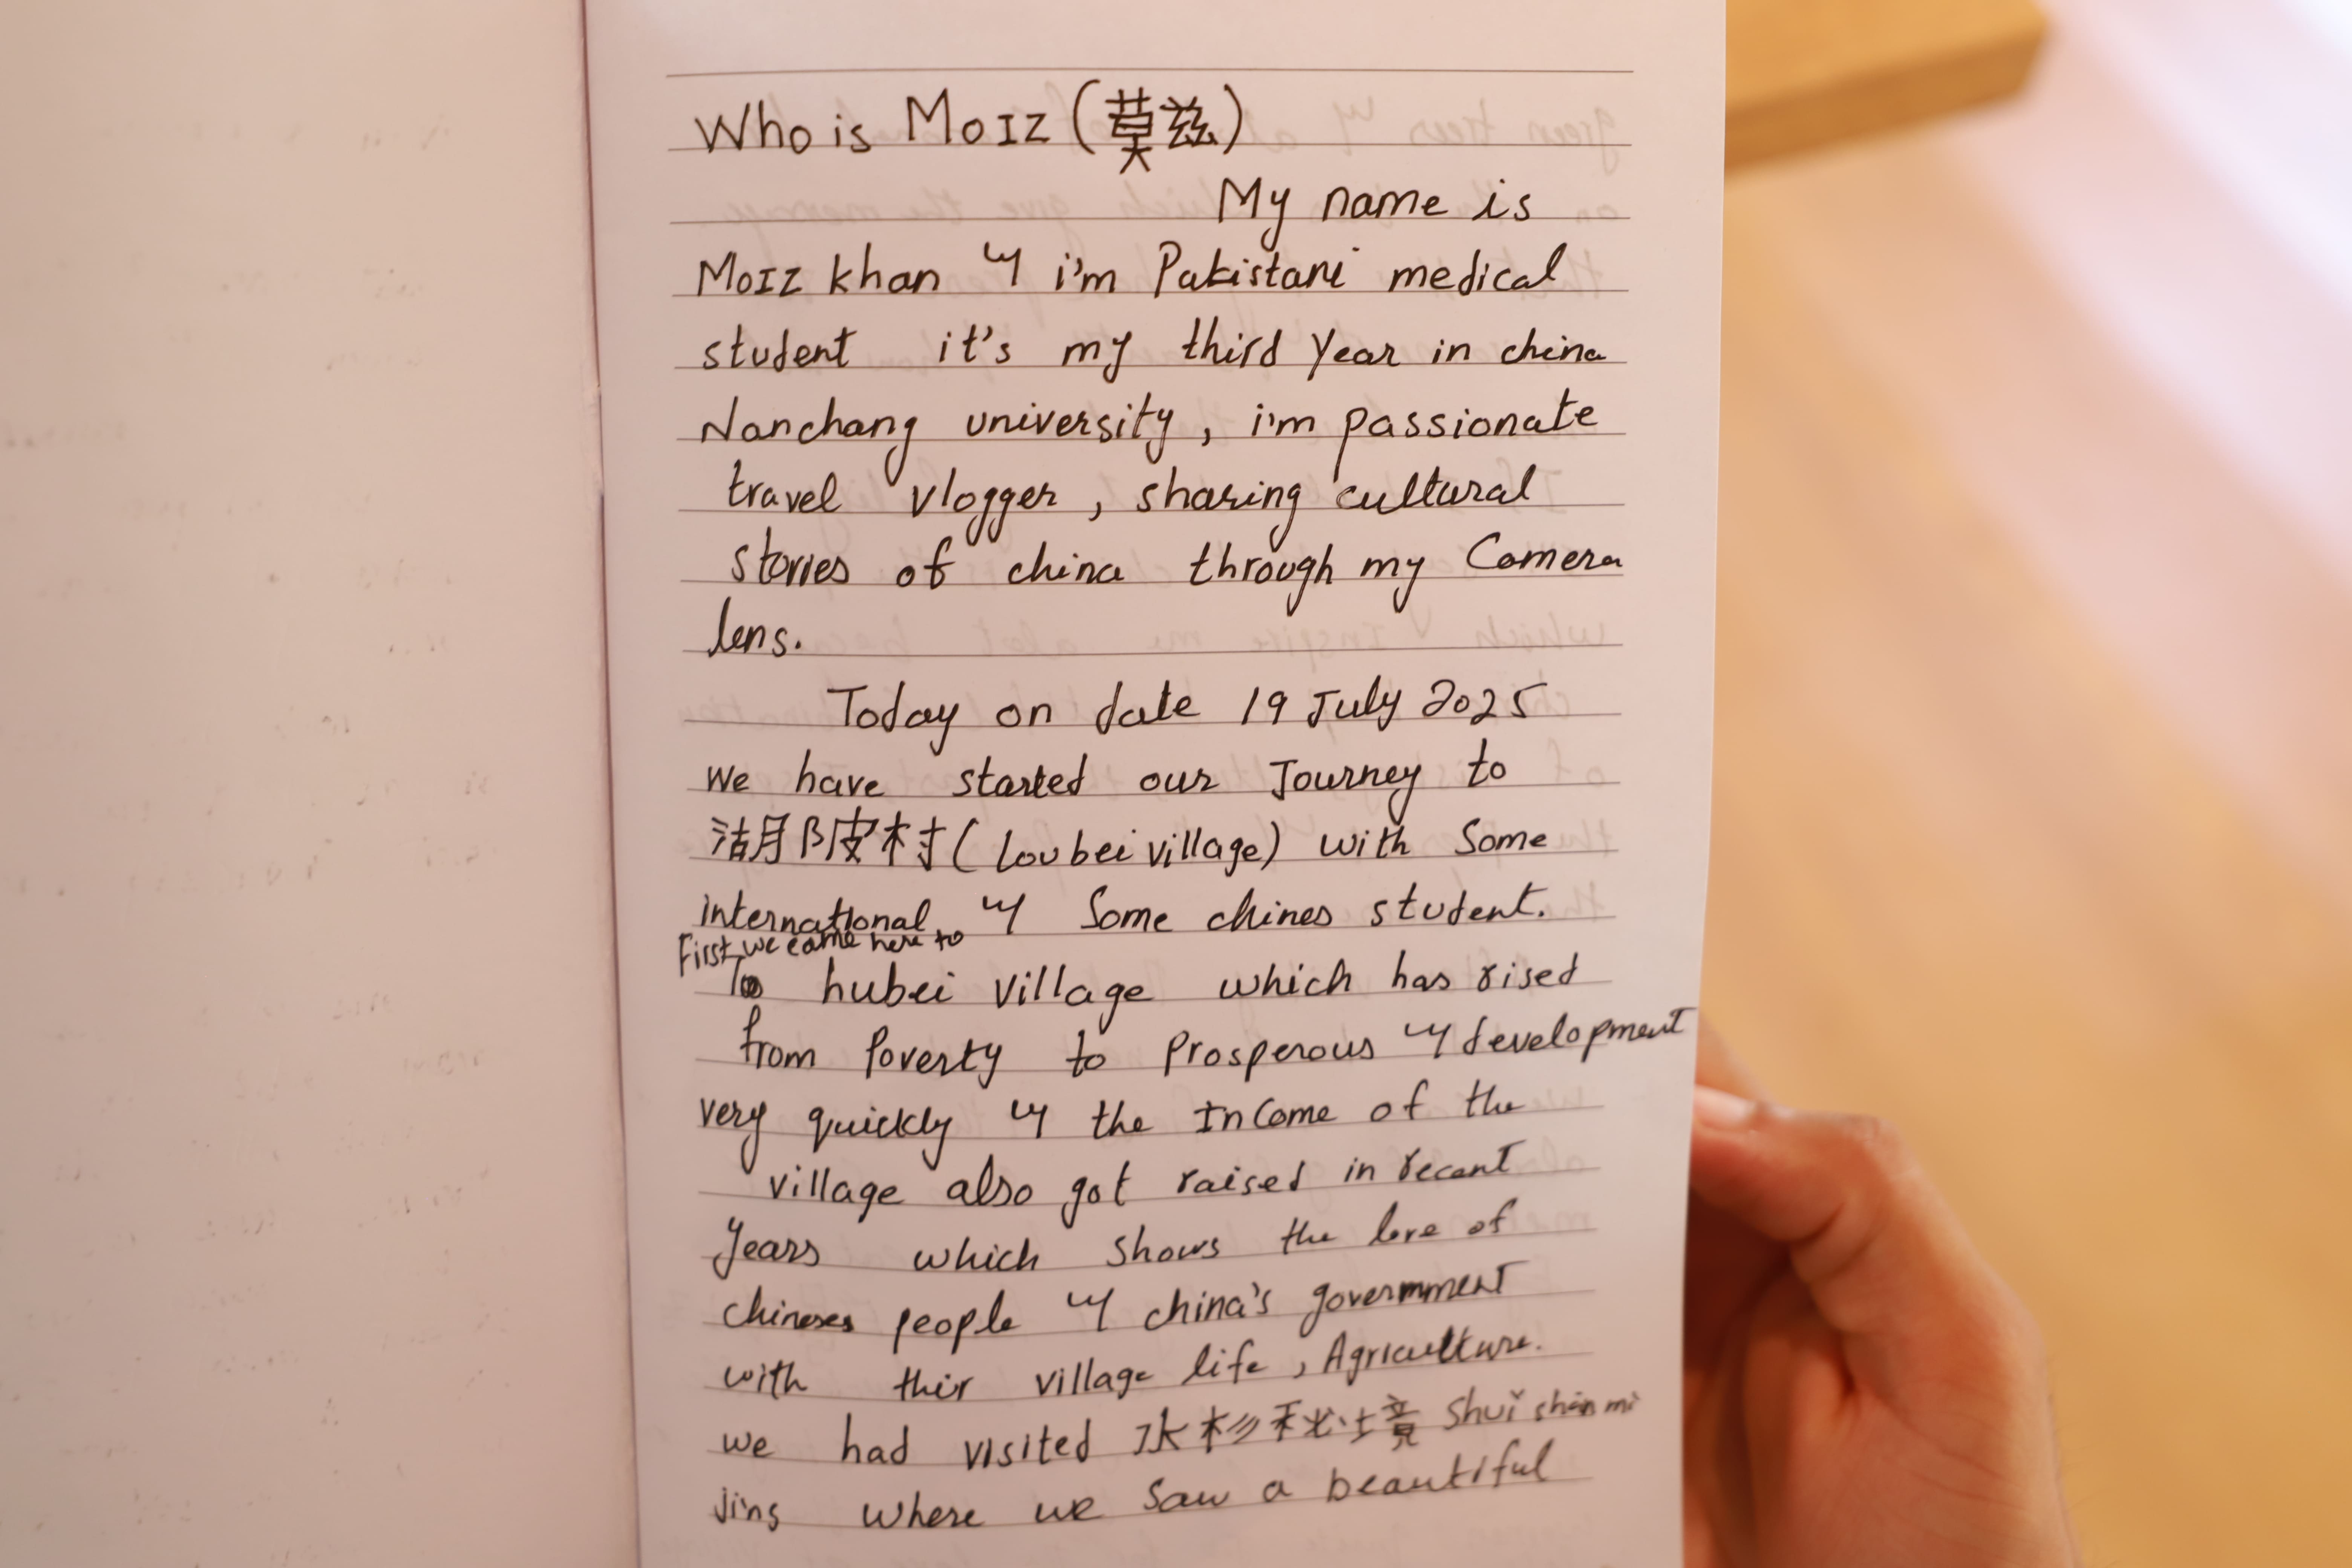 Who is MOIZ (莫兹)
My name is
MOIZ khan & i'm Pakistani medical
student it's my third Year in china
Nanchang university, i'm passionate
travel vlogger, sharing cultural
stories of china through my Camera
lens.
Today on date 19 July 2025
we have started our Journey to
湖陂村 (loubei village) with Some
international & Some chines student.
First we came here to
To hubei village which has rised
from Poverty to Prosperous & development
very quickly & the InCome of the
village also got raised in recent
Years which shows the love of
chineses people & china's governmment
with thir village life, Agriculture.
we had visited 水杉秘境 Shuǐ shān mì
jìng where we saw a beautiful